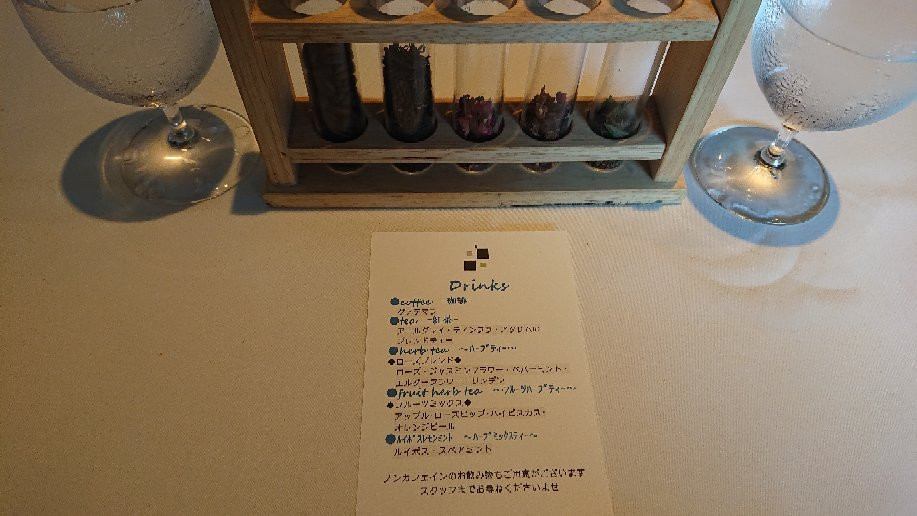 Drinks
●coffee 珈琲
グァテマラ
●tea -紅茶-
アールグレイ・ディンブラ・アッサムの
ブレンドティー
●herb tea ～ハーブティー…
◆ローズブレンド◆
ローズ・ジャスミンフラワー・ペパーミント・
エルダーフラワー リンデン
●fruit herb tea …フルーツハーブティー…
◆フルーツミックス◆
アップル・ローズヒップ・ハイビスカス・
オレンジピール
●ルイボスレモンミント ～ハーブミックスティー～
ルイボス・スペアミント
ノンカフェインのお飲み物もご用意がございます
スタッフまでお尋ねくださいませ